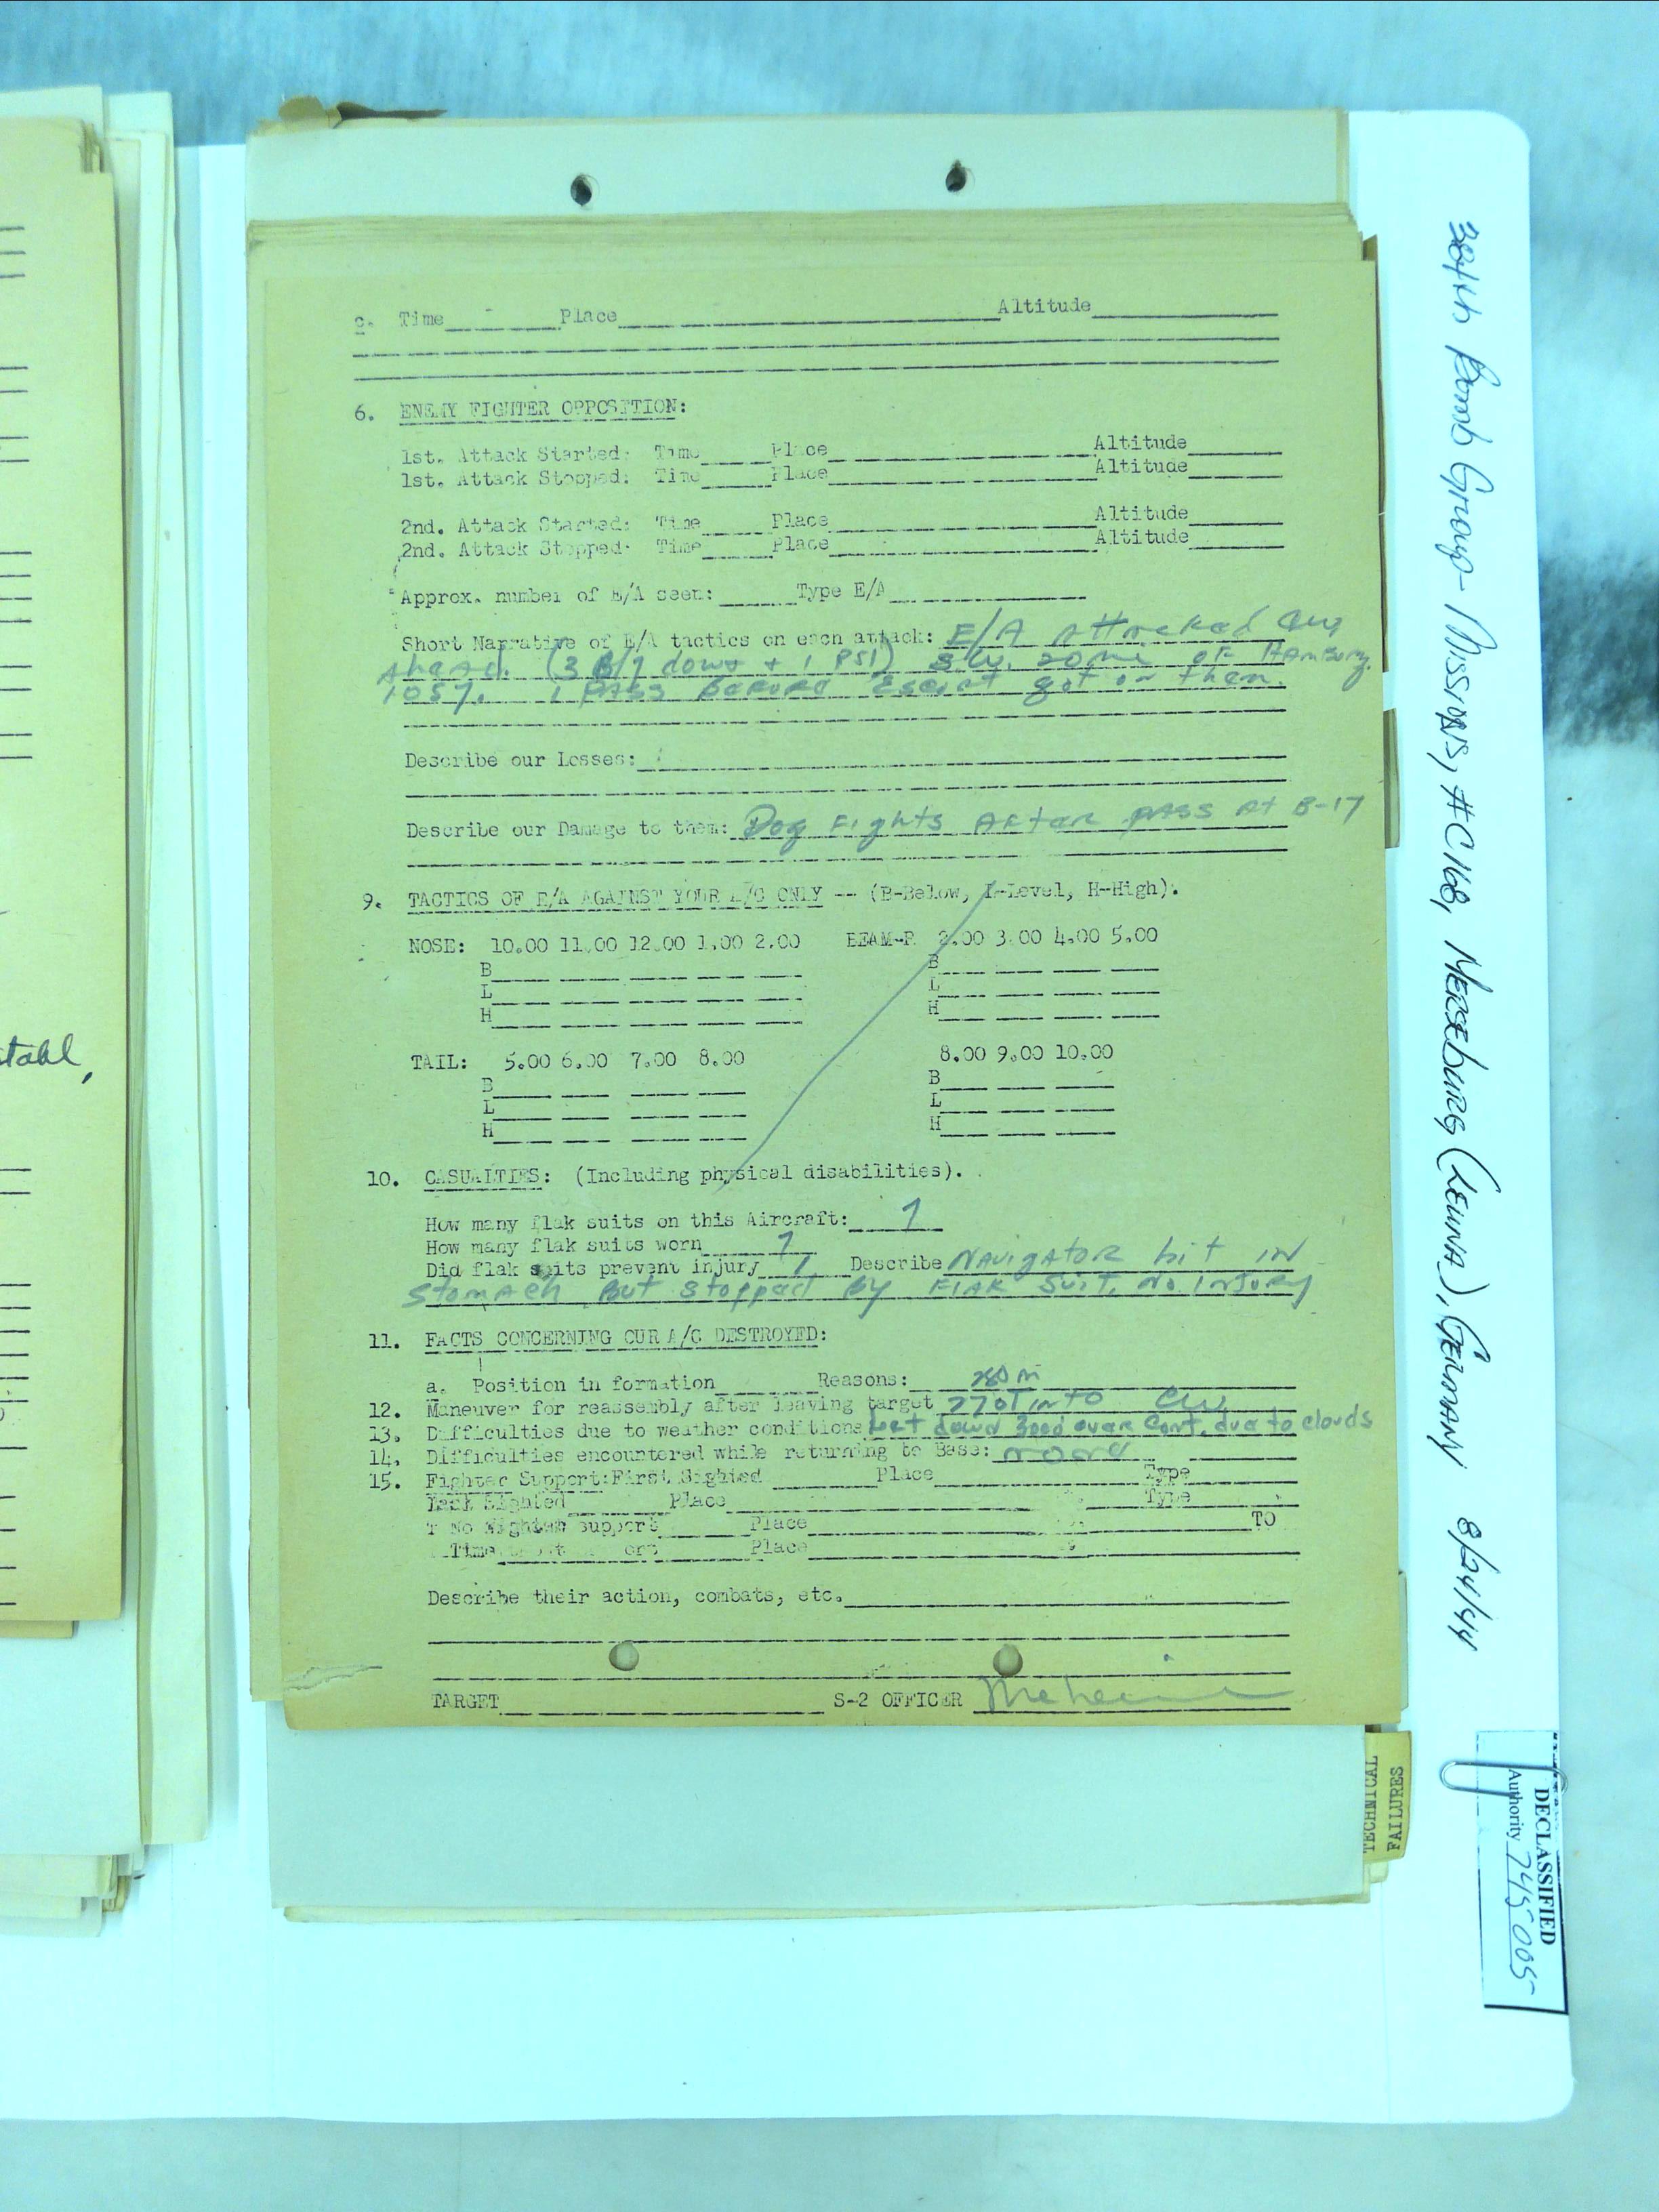 c. Time - Place Altitude
6. ENEMY FIGHTER OPPOSITION:
1st. Attack Started: Time Place Altitude
1st. Attack Stopped: Time Place Altitude
2nd. Attack Started: Time Place Altitude
2nd. Attack Stopped: Time Place Altitude
Approx. number of E/A seen: Type E/A
Short Narrative of E/A tactics on each attack: E/A Attacked CW
Ahead. (3 B/7 down + 1 P51) S.W. 20 mi OF HAmburg
1057. 1 PASS BeFore Escort got on them.
Describe our Losses:
Describe our Damage to them: Dog Fights AFter PASS At B-17
9. TACTICS OF E/A AGAINST YOUR A/C ONLY -- (B-Below, L-Level, H-High).
NOSE: 10.00 11.00 12.00 1.00 2.00 BEAM-R 2.00 3.00 4.00 5.00
B B
L L
H H
TAIL: 5.00 6.00 7.00 8.00 8.00 9.00 10.00
B B
L L
H H
10. CASUALTIES: (Including physical disabilities).
How many flak suits on this Aircraft: 9
How many flak suits worn 9
Did flak suits prevent injury 1 Describe NAvigAtoR hit IN
Stomach But Stopped by FlAK Suit. No INJury
11. FACTS CONCERNING OUR A/C DESTROYED:
a. Position in formation Reasons:
12. Maneuver for reassembly after leaving target 270T INto CW
13. Difficulties due to weather conditions Let down 3000 over Cont. due to clouds
14. Difficulties encountered while returning to Base: none
15. Fighter Support: First Sighted Place Type
Last Sighted Place Type
No support Place TO
Time Place
Describe their action, combats, etc.
TARGET S-2 OFFICER
384th Bomb Group - Missions, #C168, MERSEBURG (LEUNA), GERMANY 8/24/44
TECHNICAL
FAILURES
DECLASSIFIED
Authority 745005
stahl,